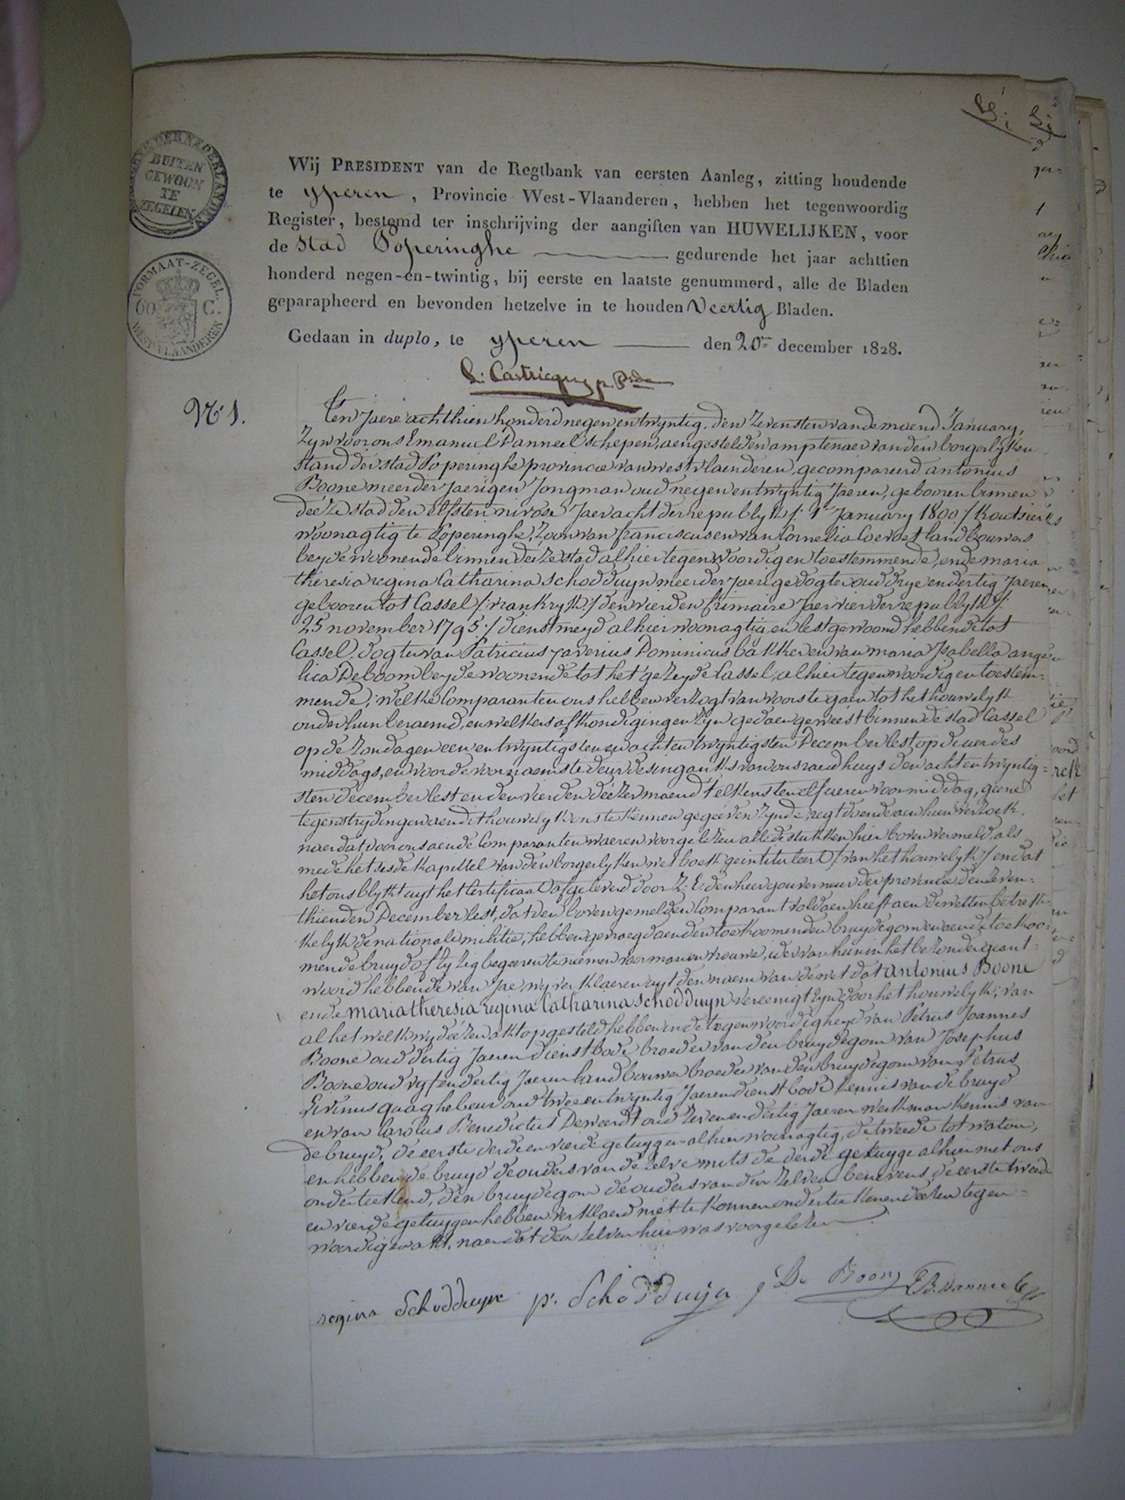 BUITEN
GEWOON
TE
ZEGELEN
FORMAAT-ZEGEL
60 C.
WEST-VLAANDEREN
Wij PRESIDENT van de Regtbank van eersten Aanleg, zitting houdende
te yperen, Provincie West-Vlaanderen, hebben het tegenwoordig
Register, bestemd ter inschrijving der aangiften van HUWELIJKEN, voor
de Stad Poperinghe gedurende het jaar achttien
honderd negen-en-twintig, bij eerste en laatste genummerd, alle de Bladen
geparapheerd en bevonden hetzelve in te houden Veertig Bladen.
Gedaan in duplo, te yperen den 20en december 1828.
No 1.
Ten Jaere achthien honderd negen en twyntig, den Zevensten van de maend January,
Zyn voor ons Emanuel Panneel schepen, aengestelden amptenaer van den borgerlyken
stand der stad Poperinghe provincie van westvlaenderen, gecompareerd antonius
Boone meerderjaerigen Jongman oud negen en twyntig Jaeren, gebooren binnen
deéze stad den Elfsten nivose Jaer acht der republyk /1 January 1800/ Koutsier
woonagtig te Poperinghe, Zoon van franciscus en van Cornelia Coevoet landbouwers
beyde woonende binnen deéze stad alhier tegenwoordig en toestemmende, ende maria
theresia regina Catharina Schodduyn meerderjaerige dogter oud drye en dertig Jaeren
gebooren tot Cassel /vrankryk/ den vierden frimaire Jaer vier der republyk /
25 november 1795/ dienstmeyd alhier woonagtig en lest gewoond hebbende tot
Cassel, dogter van Patricius xaverius Dominicus bakker en van maria Isabella ange-
lica Deboom beyde woonende tot het gezeyde Cassel, alhier tegenwoordig en toestem-
mende; welke Comparanten ons hebben verzogt van voorstegaen tot het houwelyk
onder hun beraemd, en welkers afkondigingen Zyn gedaen geweést binnen de stad Cassel
op de Zondagen een en twyntigsten en acht en twyntigsten December lest op de uer des
middags, en voor de voornaemste deur des ingangs van ons raedhuys den acht en twyntig-
sten december lest en den vierden déézer maend t'elkens ten elf ueren voormiddag, geene
tegenstrydingen aen de t houwelyk ons te kennen gegeéven Zynde, regt doende aen hun verzoek
naer dat door ons aen de Comparanten waeren voorgelezen alle de stukken hier boven vermeld als
mede het sesde Kapittel van den borgerlyken wetboek geintituleert /van het houwelyk/ en dat
het ons blykt uyt het Certificaat afgeleverd door Z: E: den heer gouverneur der provincie den Zeven-
thienden December lest, dat den boven gemelden Comparant voldaen heeft aen de wetten betrek-
kelyk de nationale militie, hebben gevraegd aen den toekomenden bruydegom en aen de toekoo-
mende bruyd of Zy Zig begeeren te nemen voor man en vrouwe, ider van hun in het bezonder geant-
woord hebbende van Jae, wy verklaeren uyt den naem van de wet dat antonius Boone
ende maria theresia regina Catharina Schodduyn vereenigt Zyn door het houwelyk; van
al het welk wy deézen akt opgesteld hebben in de tegenwoordigheyd van Petrus Joannes
Boone oud dertig Jaeren dienstbode broeder van den bruydegom van Josephus
Boone oud vyf en dertig Jaeren landbouwer broeder van den bruydegom van Petrus
Livinus quaghebeur oud twee en twyntig Jaeren dienstbode kennis van de bruyd
en van Carolus Benedictus Deweerdt oud Zeven en dertig Jaeren werkman kennis van
de bruyd, de eerste derde en vierde getuygen alhier woonagtig, de tweede tot watou,
en hebben de bruyd de ouders van de Zelve mits de derde getuyge alhier met ons
onderteekend, den bruydegom de ouders van den Zelven benevens de eerste tweede
en vierde getuygen hebben verklaerd niet te konnen onderteekenen deézen tegen-
woordigen akt, naer dat den Zelven hun was voorgelezen.
regina Schodduyn p. Schodduyn De Boom